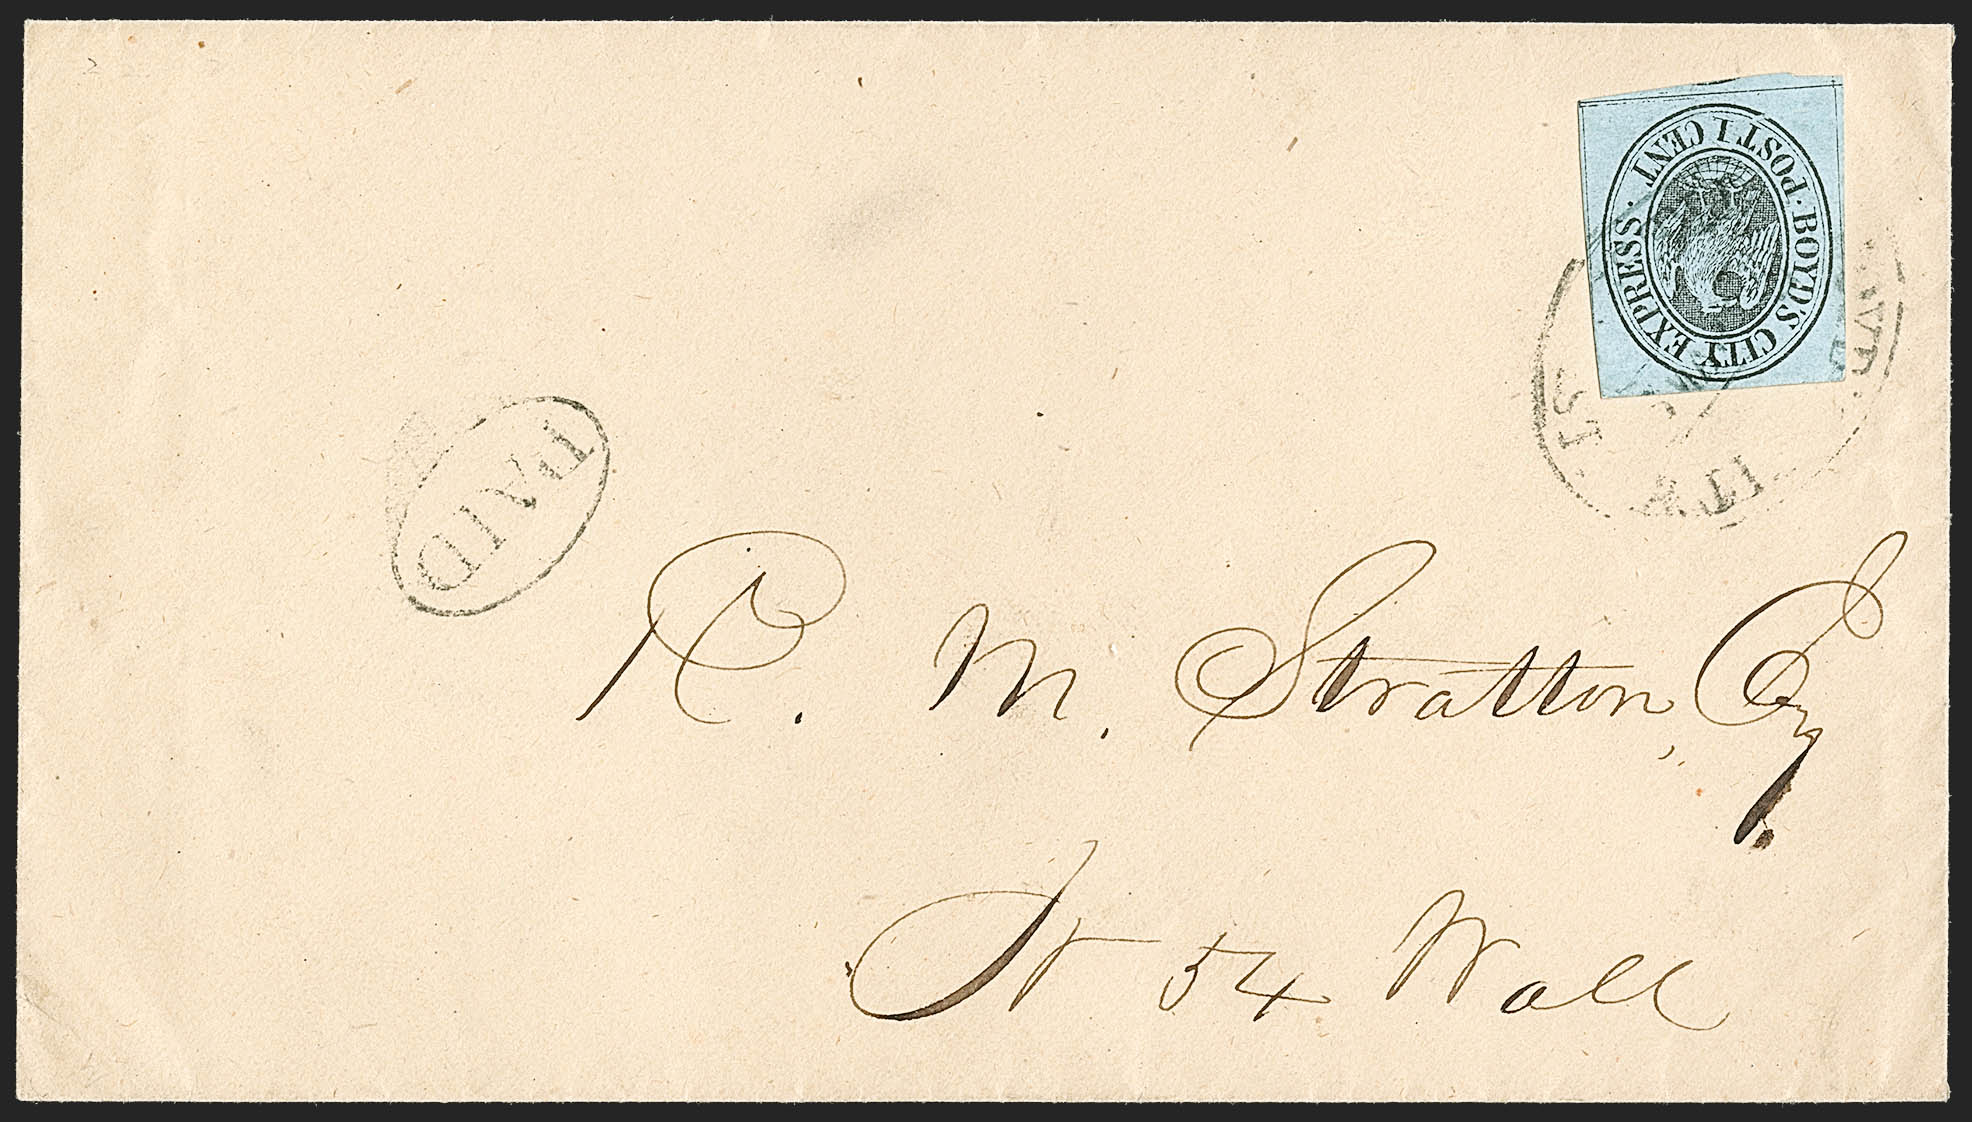 BOYD'S CITY EXPRESS. POST 1 CENT
PAID
R. M. Stratton, Esq.
54 Wall